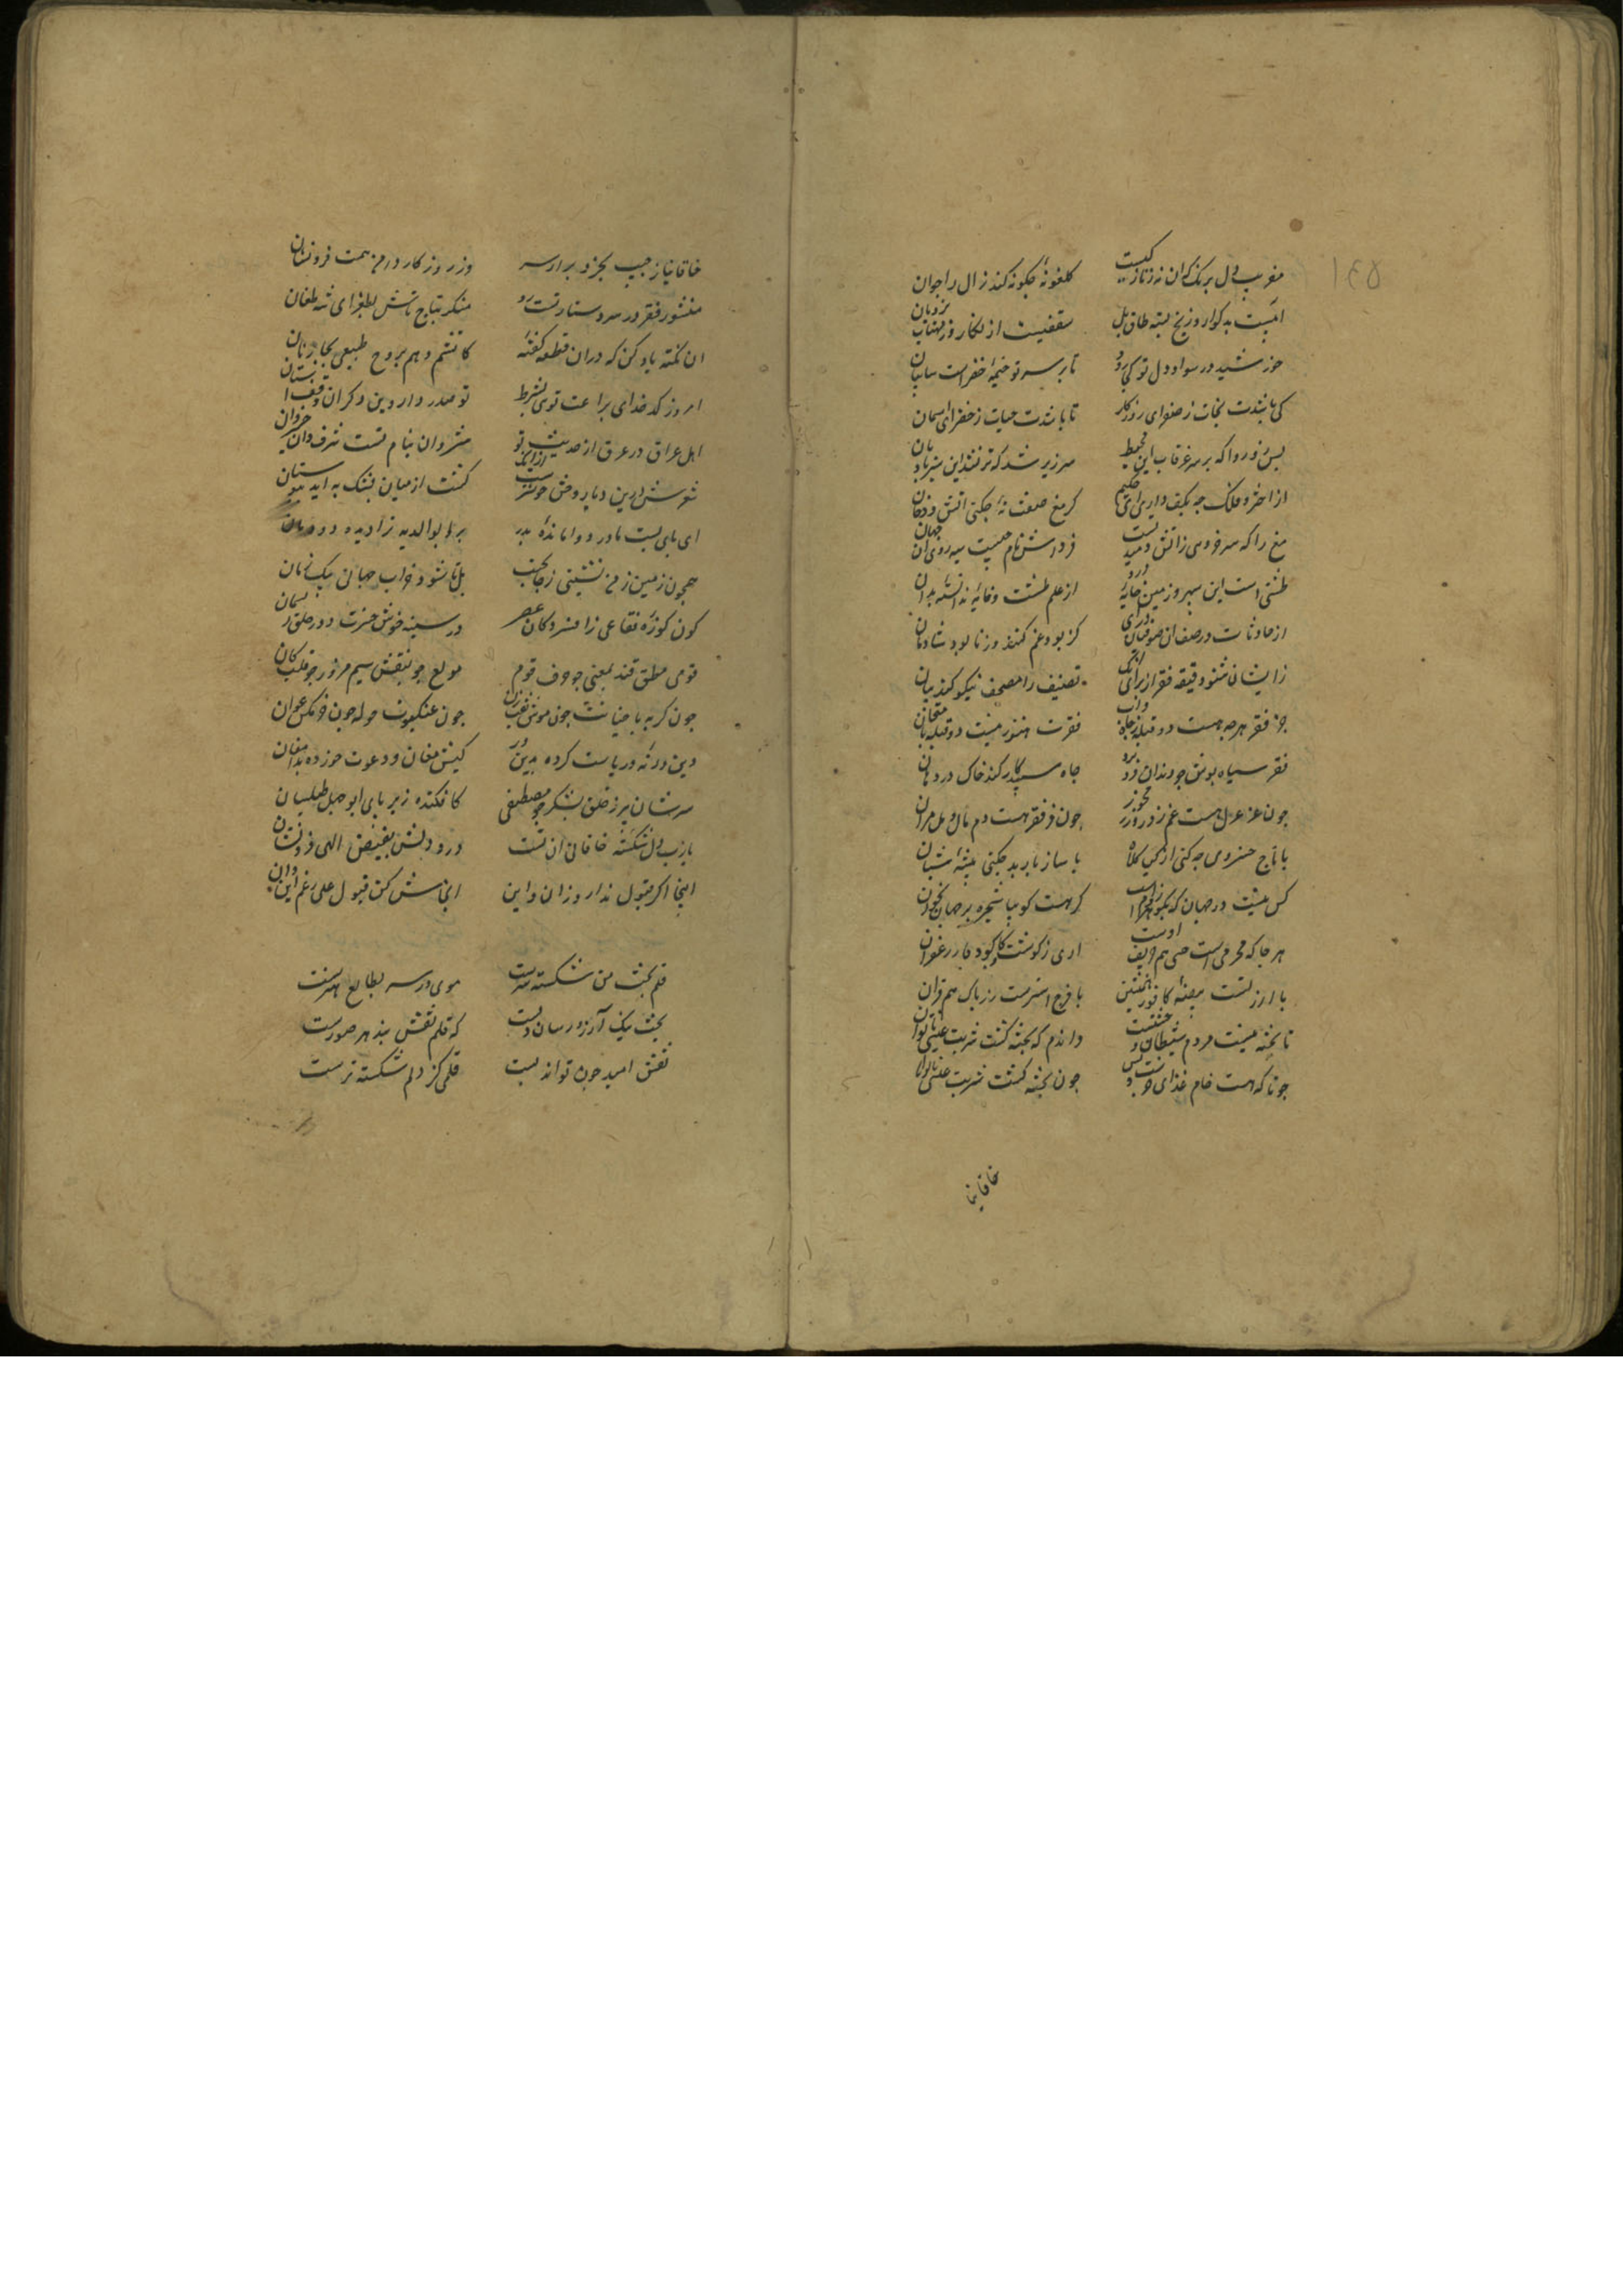 ۱۴۵
مفریب دل برنک جهان نه تازکیست کلغونهٔ جکونه کند زال را جوان
ابیست بد کوار و زیخ بسته طاق پل سقفیست از نکار و ز مهتاب نردبان
خورشید در سواد دل تو کی رود تا بر سر تو خیمهٔ خضراست سایبان
کی باشدت نجات ز صفرای روزکار تا باشدت حیات ز خضرای اسمان
بس زورقا که بر سر غرقاب این محیط سرزیر شد که تر نشد این سبز بادبان
از اختر و فلک جه بکف داری ای حکیم کر مغ صفت نهٔ جکنی اتش و دخان
مغ را که سرخ روی از اتش دمیدنست فرداش نام جیست سیه روی ان جهان
طشتی است این سپهر و زمین خایهٔ درو از علم طشت و خایه ندانسته‌اند ان
از حادثات در صف ان صوفیان کریز کز بود غم کنند و ز نابود شادمان
زایشان شنو دقیقه فقر از برای انک تصنیف را مصنف نیکو کند بیان
جز فقر هرجه هست دو قبله ز جاه فقرت هنوز نیست دو قبله بامتحان
فقر سیاه پوش جو دندان فرو برد جاه سپید کار کند خاک در دهان
جون عز عزل هست غم زور و زر مخور جون فر فقر هست دم مال و مل مران
با تاج خسروی جه کنی از کیا کلاه با ساز باربد جکنی پیشهٔ شبان
کس نیست در جهان که بکوهر ز ادمست کر هست کو بیا شجره بر جهان بخوان
هر جا که محرمی است خسی هم حریف اوست اری ز کوشت کاو بود بار زعفران
با ارزنست بیضهٔ کافور همنشین با فرج استرست زر پاک هم قران
تا پخته نیست مردم شیطان وحشتست واندم که پخته کشت شربت عیسی ناتوان
جوتا که هست خام غذای خرست و بس جون پخته کشت شربت عیسی ناتوان
خاقانیا
خاقانیا ز جیب تجرد برار سر وز روزکار دامن همت فرو نشان
منشور فقر در سر دستار تست رو منکر بتاج تاش بطغرای شه طغان
ان نکته یاد کن که دران قطعه کفتهٔ کاتشم و هم بروح طبیعی بجا زنان
امروز کدخدای براعت توی بشرط تو صدر دار و این دکران وقف استان
اهل عراق در عرق از حدیث تو شروان بنام تست شرف‌وان و خیروان
شعرت درین دیار وحش خوشترست ازانک کشت از میان پشک به اید ببوستان
ای پای بست مادر و وامانده پدر برا بوالدیه تراا دیده دودمان
همجون زمین ز من نشینی ز جا مجنب بل تا شود خراب جهان یک زمان
کون کوزهٔ فقاعی زافسردکان عصر در سینه خوش حسرت و در حلق ریسمان
قومی مطوقند بمعنی جو حرف قوم مولع جو بنقش سیم مزور جو قلب کان
جون کربه پاخیانت جون موش نقب زن جون عنکبوت جوله جون خرمکس عوان
دین ورنه و ریاست کرده بدینور کیش مغان و دعوت خورده بدامغان
سرشان ببر ز حلق بشکر جو مصطفی کافکنده زیر پای ابوجهل طیلسان
یارب دل شکسته خاقانی ان تست درد دلش بفیض الهی فرو نشان
اینجا اکر قبول ندارد ز ان و این انجاش کن قبول علی رغم این و ان
قلم بخت من شکسته سرست موی در سر بطالع هنرست
بخت نیک آرزو رسان دلست که قلم نقش بند هر صورست
نقش امید جون تواند بست قلمی کز دلم شکسته ترست